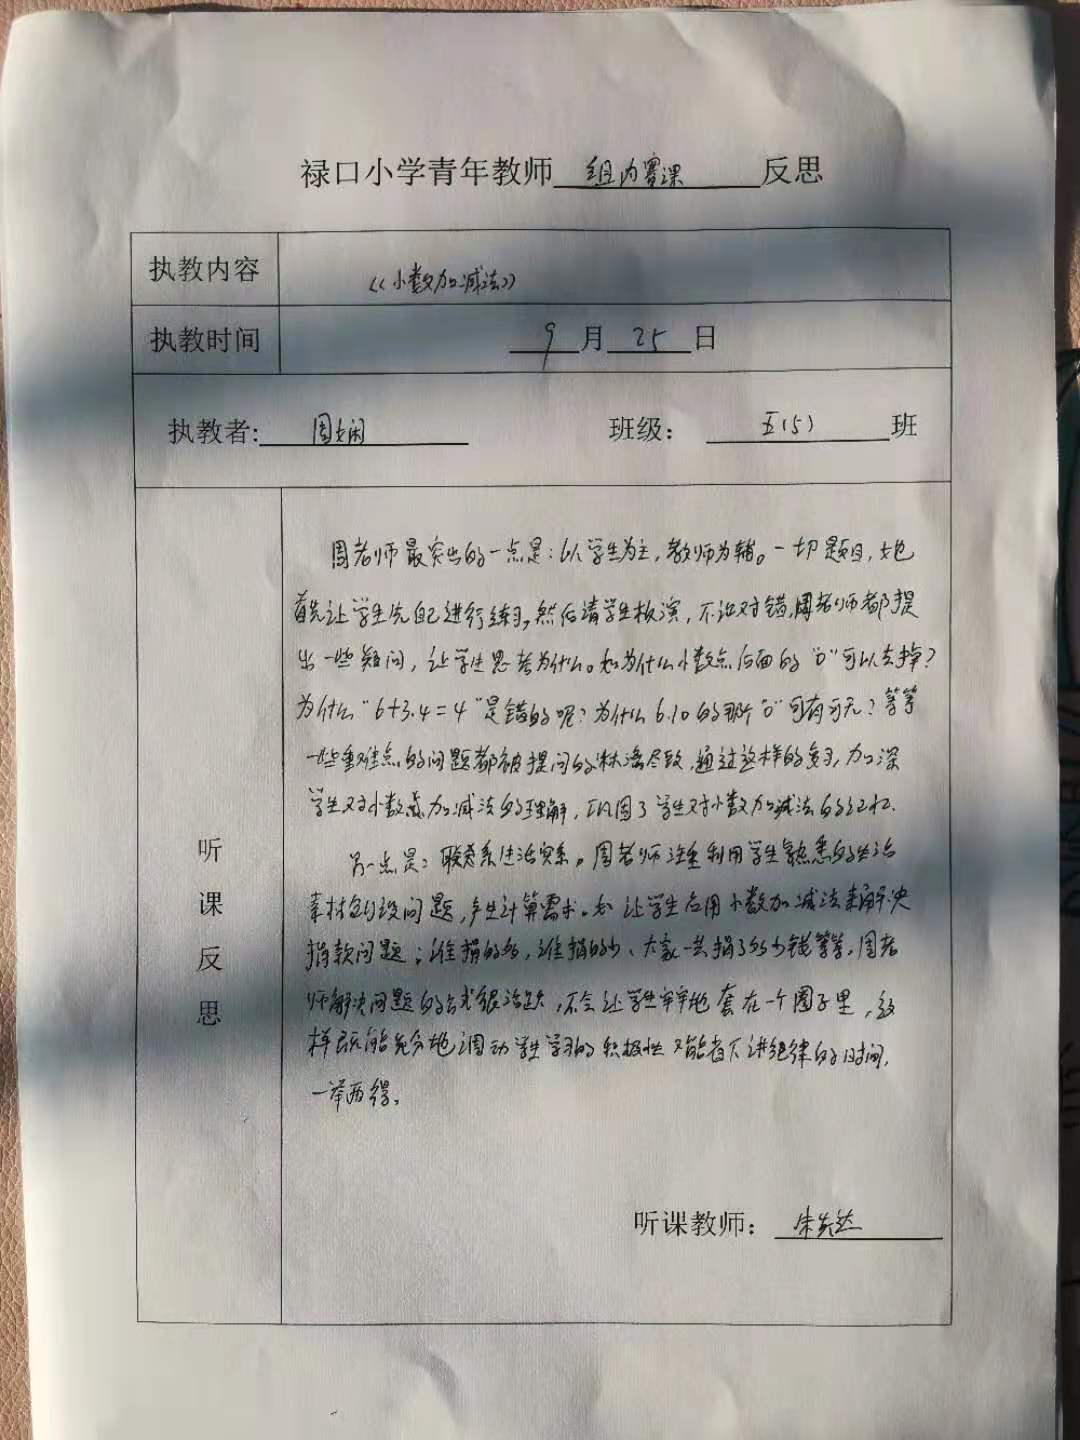 禄口小学青年教师 组内赛课 反思
执教内容 《小数加减法》
执教时间 9月25日
执教者: 周娴 班级: 五(5) 班
周老师最突出的一点是:以学生为主,教师为辅。一切题目,她
首先让学生先自己进行练习,然后请学生板演,不论对错,周老师都提
出一些疑问,让学生思考为什么。如为什么小数点后面的"0"可以去掉?
为什么"6+3.4=4"是错的呢?为什么6.10的那个"0"可有可无?等等
一些重难点的问题都被提问的淋漓尽致,通过这样的复习,加深
学生对小数加减法的理解,巩固了学生对小数加减法的记忆.
另一点是:联系生活实系。周老师注重利用学生熟悉的生活
素材创设问题,产生计算需求。如让学生应用小数加减法来解决
捐款问题;谁捐的多,谁捐的少、大家一共捐了多少钱等等。周老
师解决问题的方式很活跃,不会让学生牢牢地套在一个圈子里,这
样既能充分地调动学生学习的积极性又能省下讲纪律的时间,
一举两得。
听课反思
听课教师: 朱